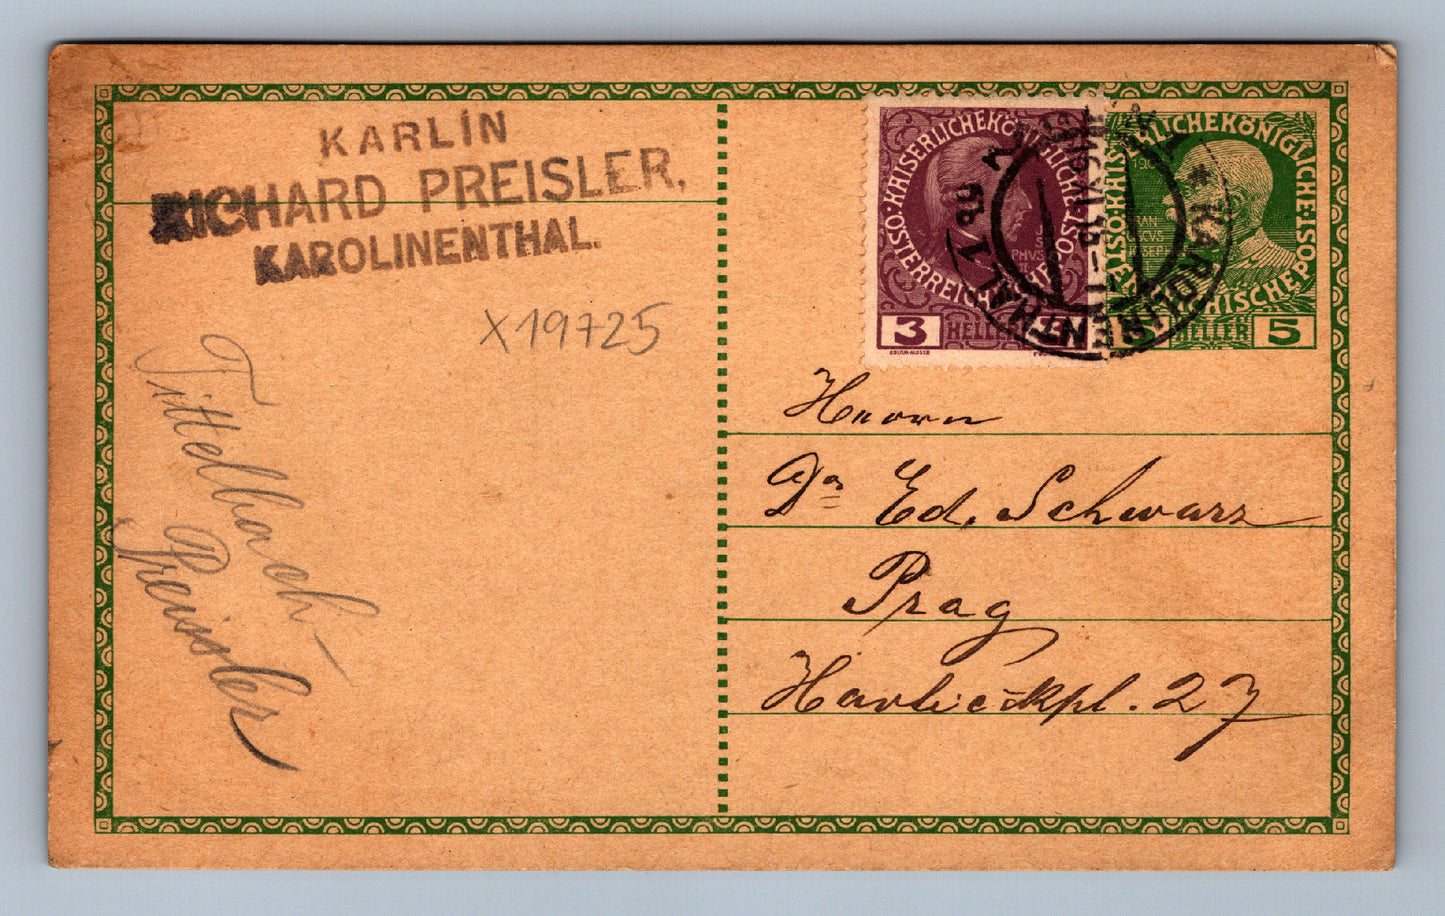 KARLÍN
RICHARD PREISLER,
KAROLINENTHAL.
X19725
Tittelbach-
Preissler
KAISERLICHE KÖNIGLICHE
ÖSTERREICHISCHE POST
3 HELLER 3
KAISERLICHE KÖNIGLICHE
ÖSTERREICHISCHE POST
5 HELLER 5
KAROLINENTHAL 1
Herrn
Dr Ed. Schwarz
Prag
Havlic=kpl. 27